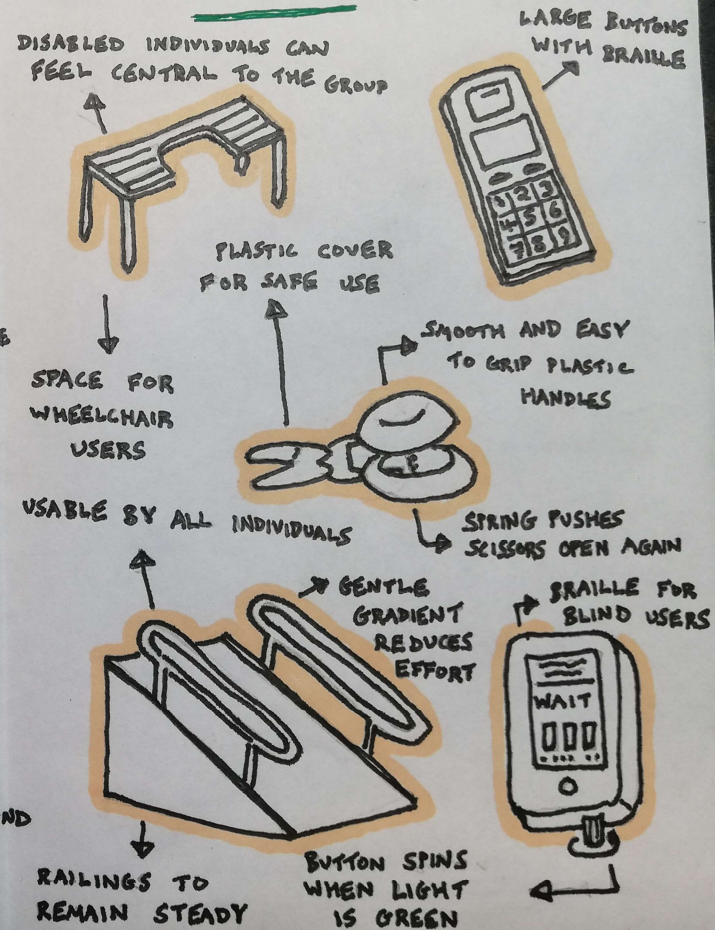 DISABLED INDIVIDUALS CAN
FEEL CENTRAL TO THE GROUP
LARGE BUTTONS
WITH BRAILLE
1 2 3
4 5 6
7 8 9
PLASTIC COVER
FOR SAFE USE
SPACE FOR
WHEELCHAIR
USERS
SMOOTH AND EASY
TO GRIP PLASTIC
HANDLES
USABLE BY ALL INDIVIDUALS
SPRING PUSHES
SCISSORS OPEN AGAIN
GENTLE
GRADIENT
REDUCES
EFFORT
BRAILLE FOR
BLIND USERS
WAIT
RAILINGS TO
REMAIN STEADY
BUTTON SPINS
WHEN LIGHT
IS GREEN